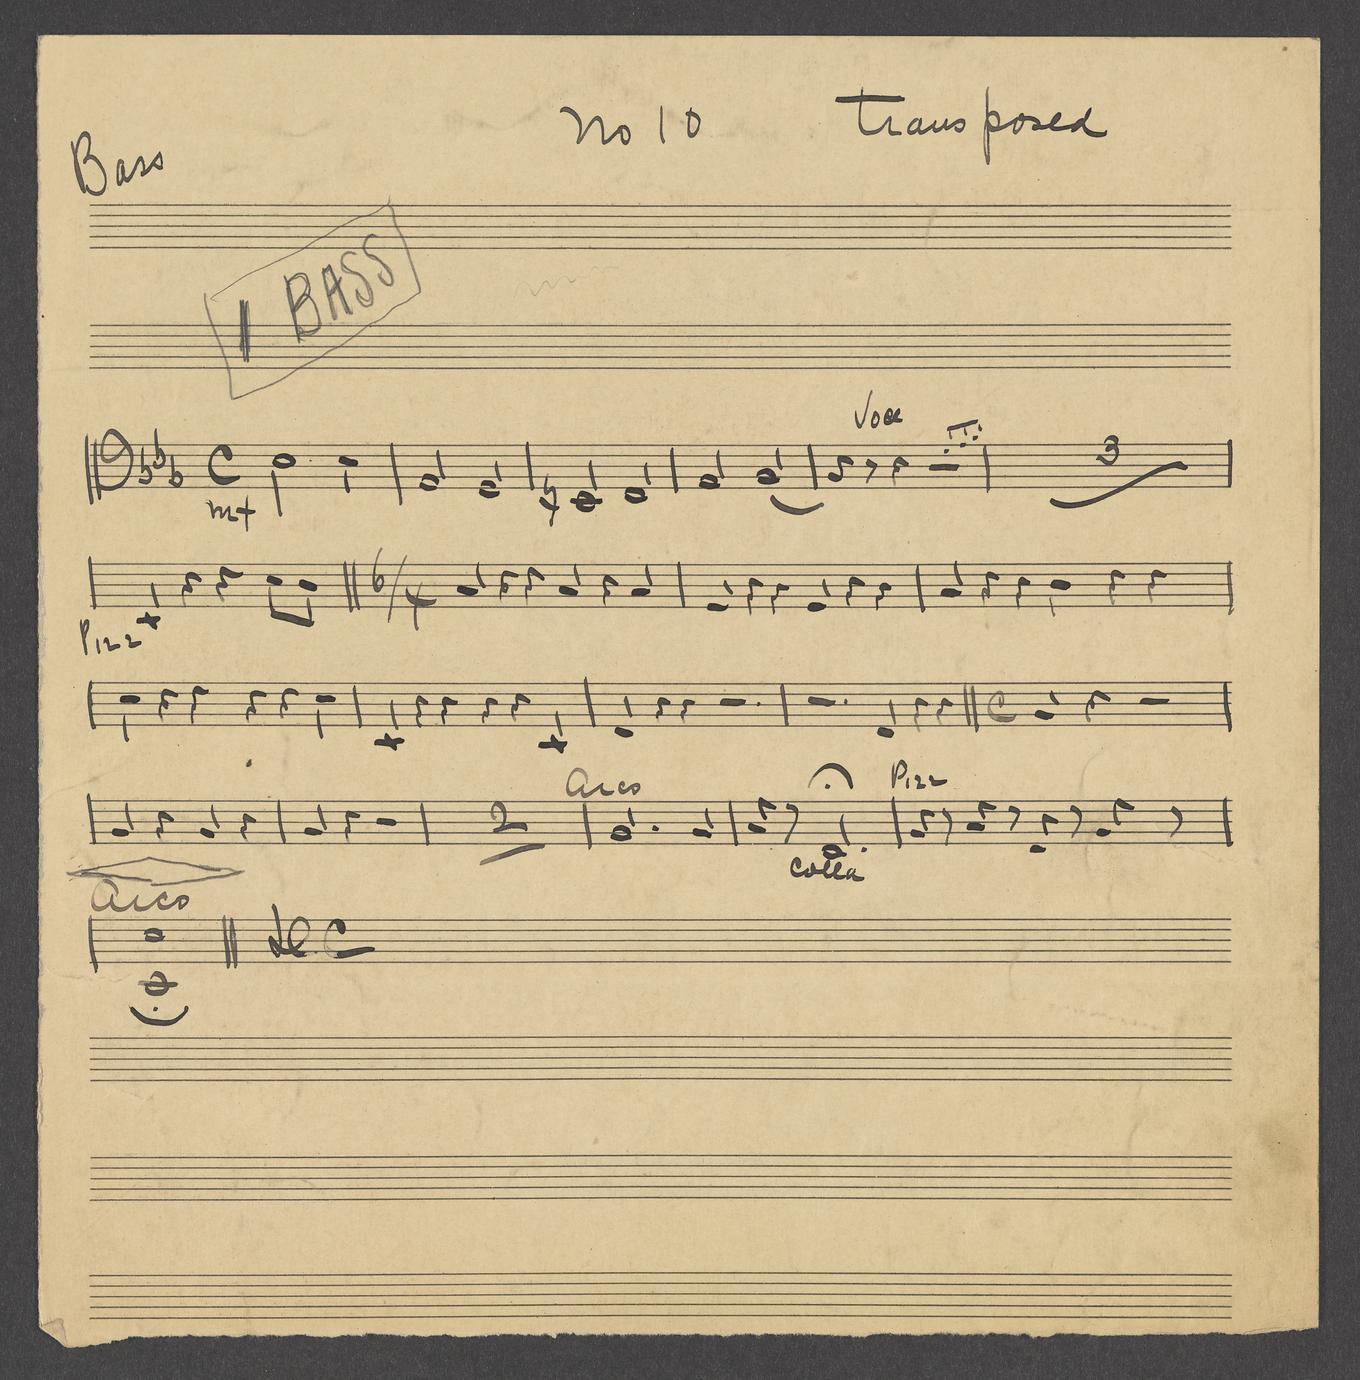 No 10 Transposed
Bass
1 BASS
Voce
C
mf
3
6/4
Pizz
C
Arco
Pizz
2
Colla
Arco